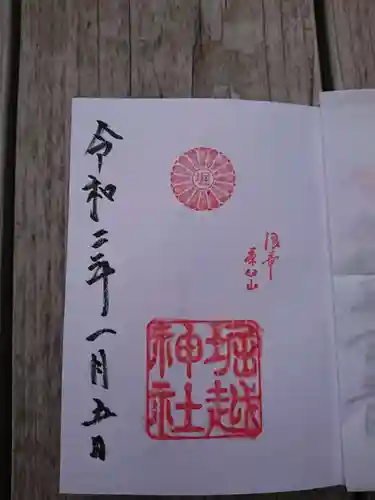 堀
堀越
神社
令和二年一月五日